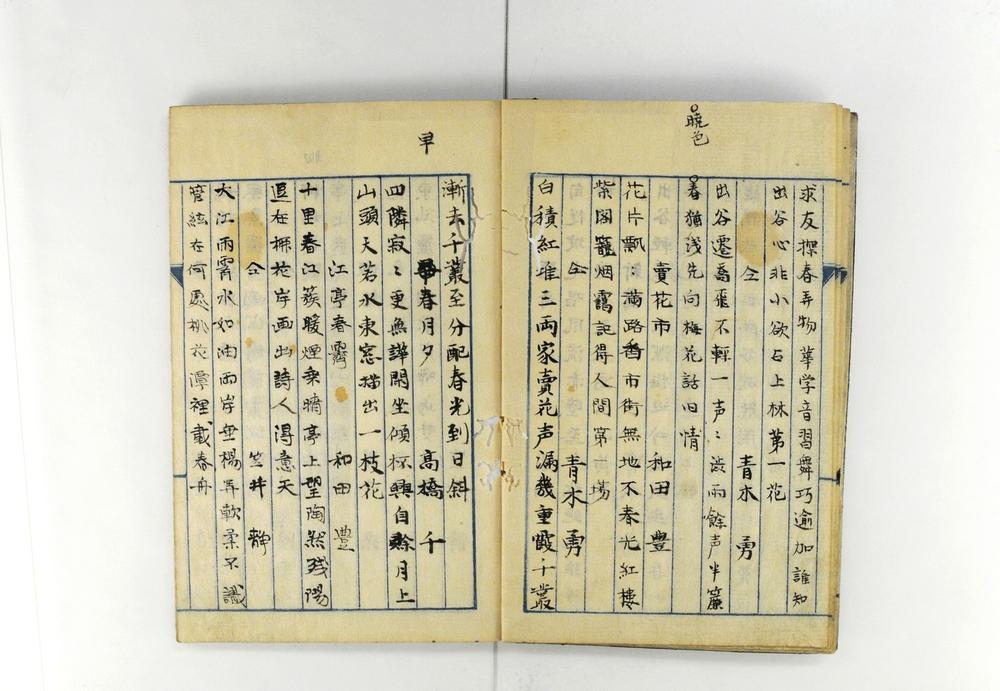 求友探春弄物華学音習舞巧逾加誰知
出谷心非小欲占上林第一花
仝 青木 勇
出谷遷喬飛不軽一声〻渋雨餘声半簾
暁色
春猶浅先向梅花話旧情
賣花市 和田 豊
花片飄〻満路香市街無地不春光紅樓
紫閣籠烟靄記得人間第一場
仝 青木 勇
白積紅堆三両家賣花声漏幾重霞千叢
漸去千叢至分配春光到日斜
早春月夕 高橋 千
四隣寂〻更無譁閑坐傾杯興自賖月上
山頭天若水東窓描出一枝花
江亭春霽 和田 豊
十里春江簇暖煙乗晴亭上望陶然残陽
逗在桃花岸画出詩人得意天
仝 笠井 静
大江雨霽水如油両岸垂楊弄軟柔不識
管絃在何處桃花潭裡載春舟